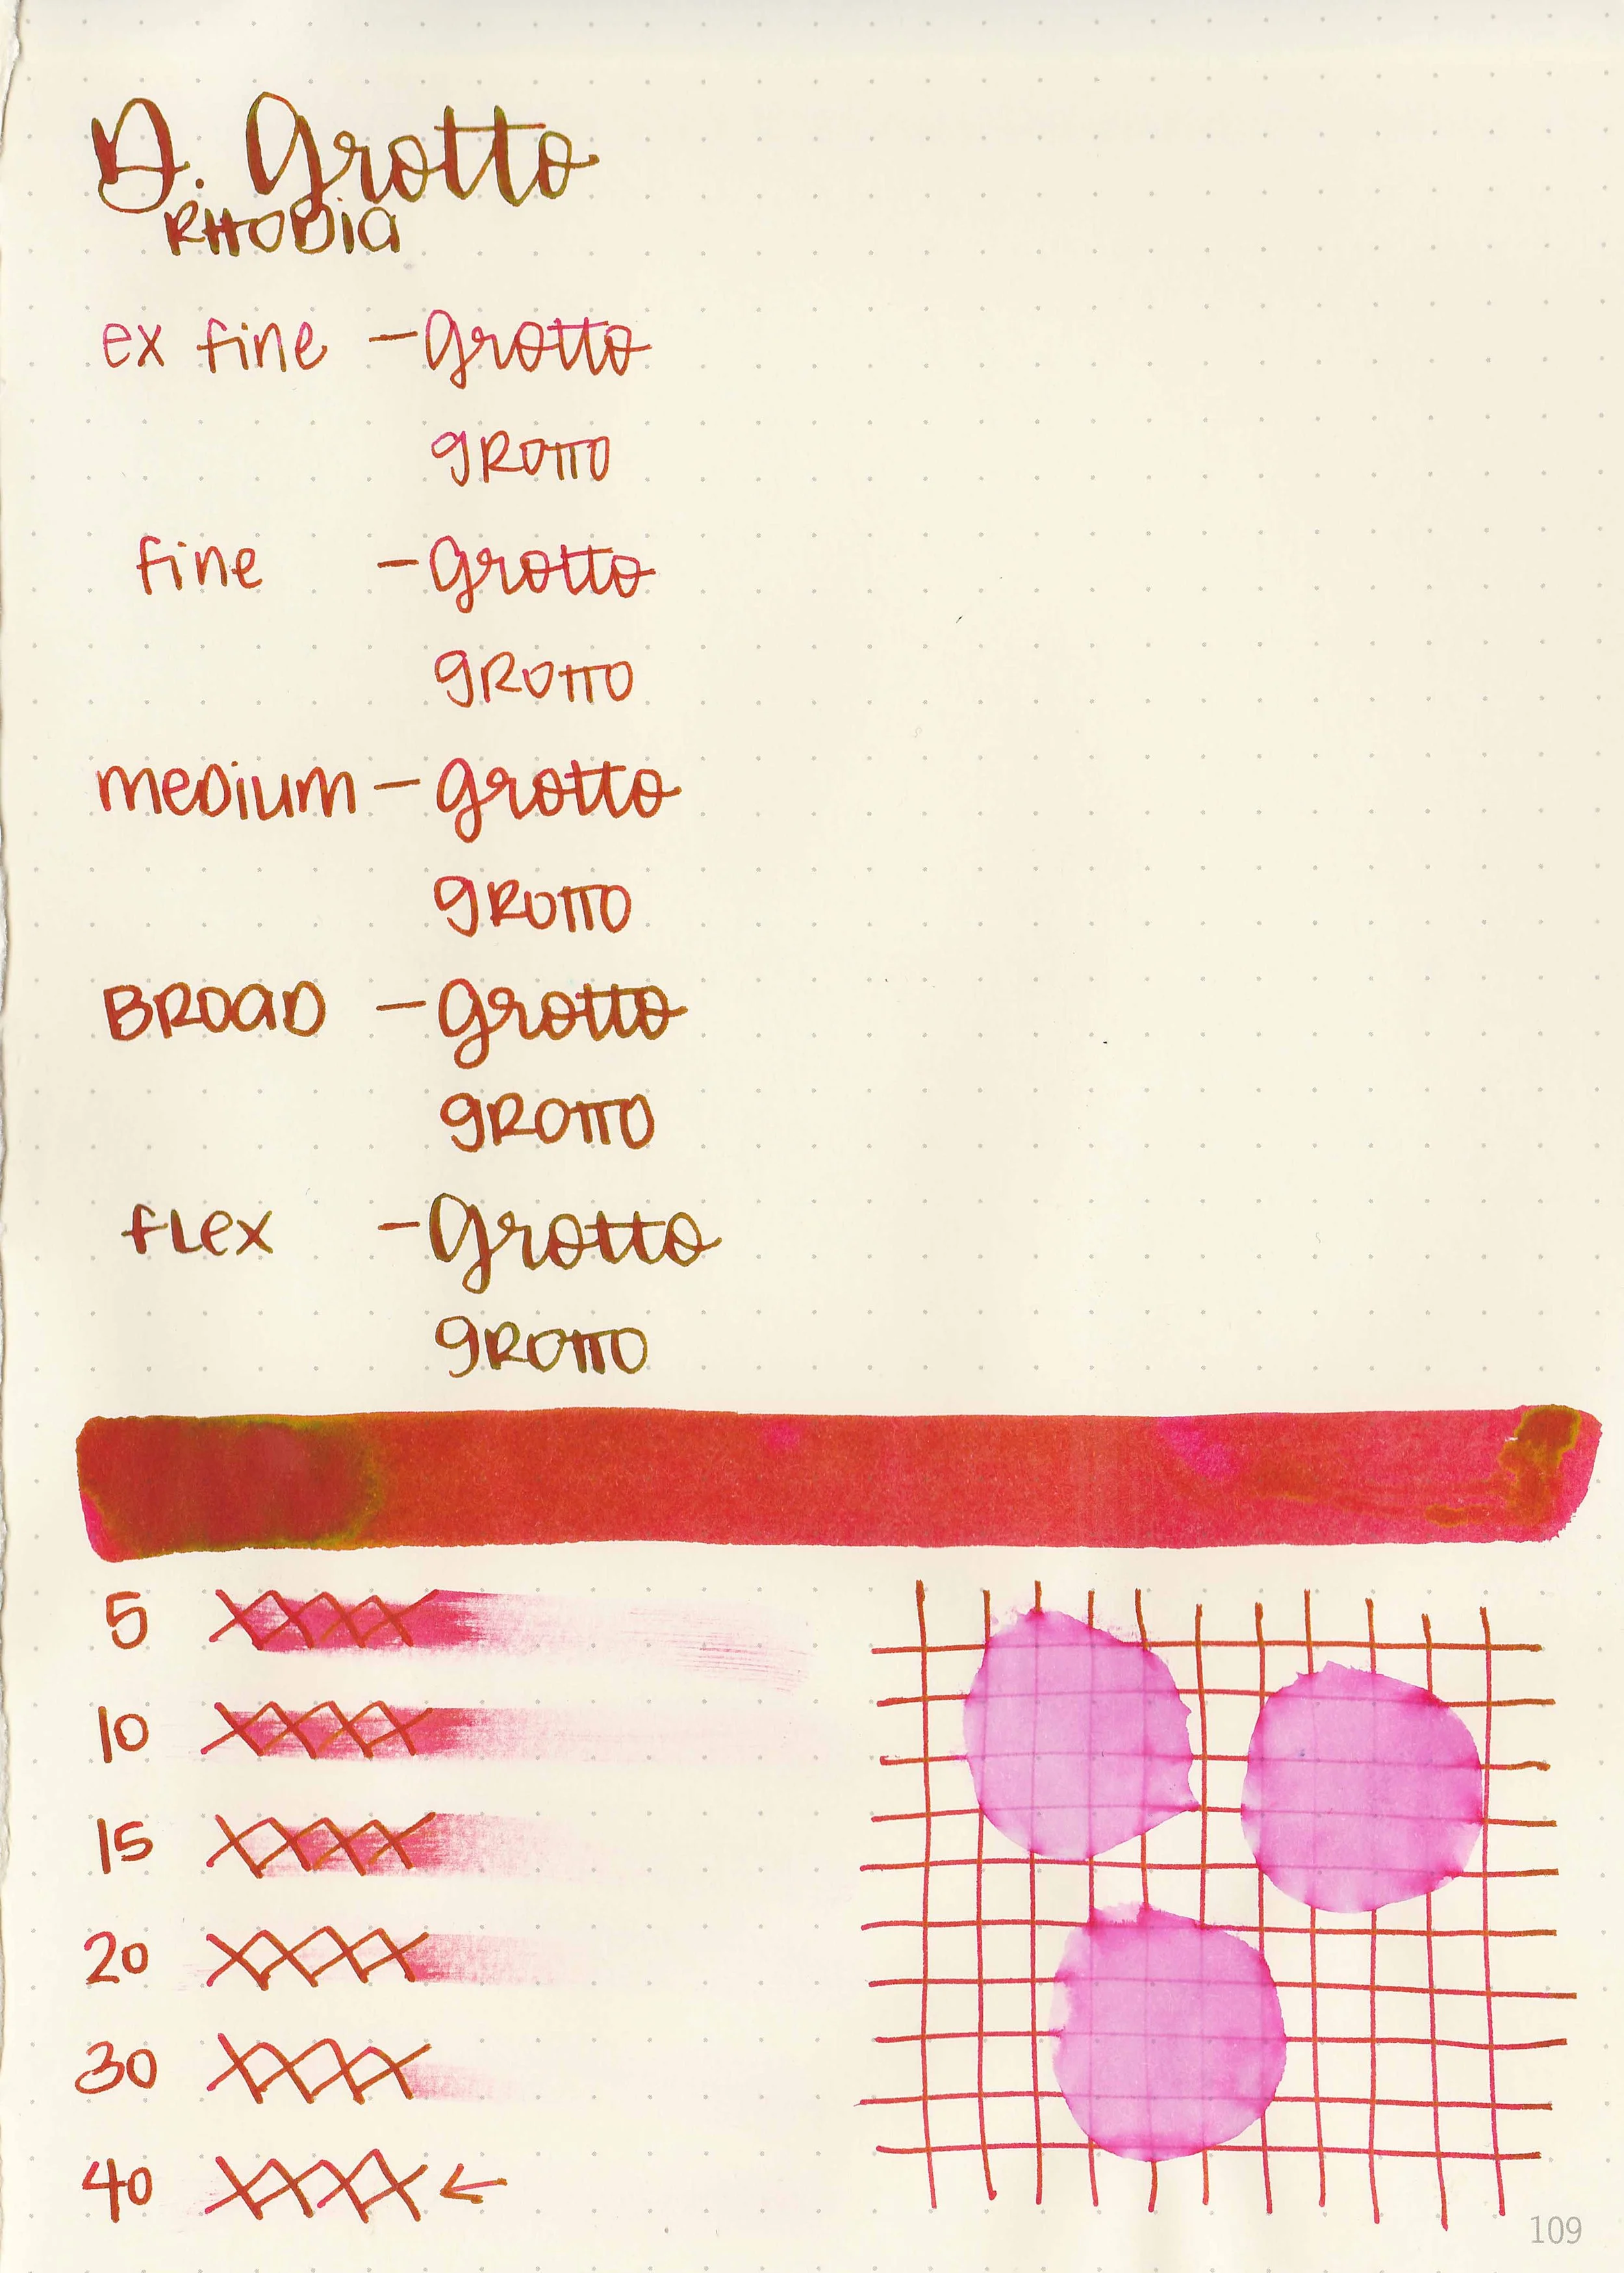 D. Grotto
RHODIA
ex fine - grotto
gROTTO
fine - grotto
gROTTO
meDium - grotto
gROTTO
BROaD - grotto
gROTTO
fLex - grotto
gROTTO
5
10
15
20
30
40 ←
109